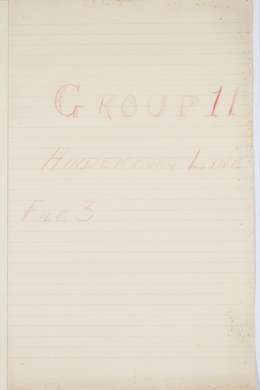 GROUP 11
HINDENBURG LINE
FILE 3